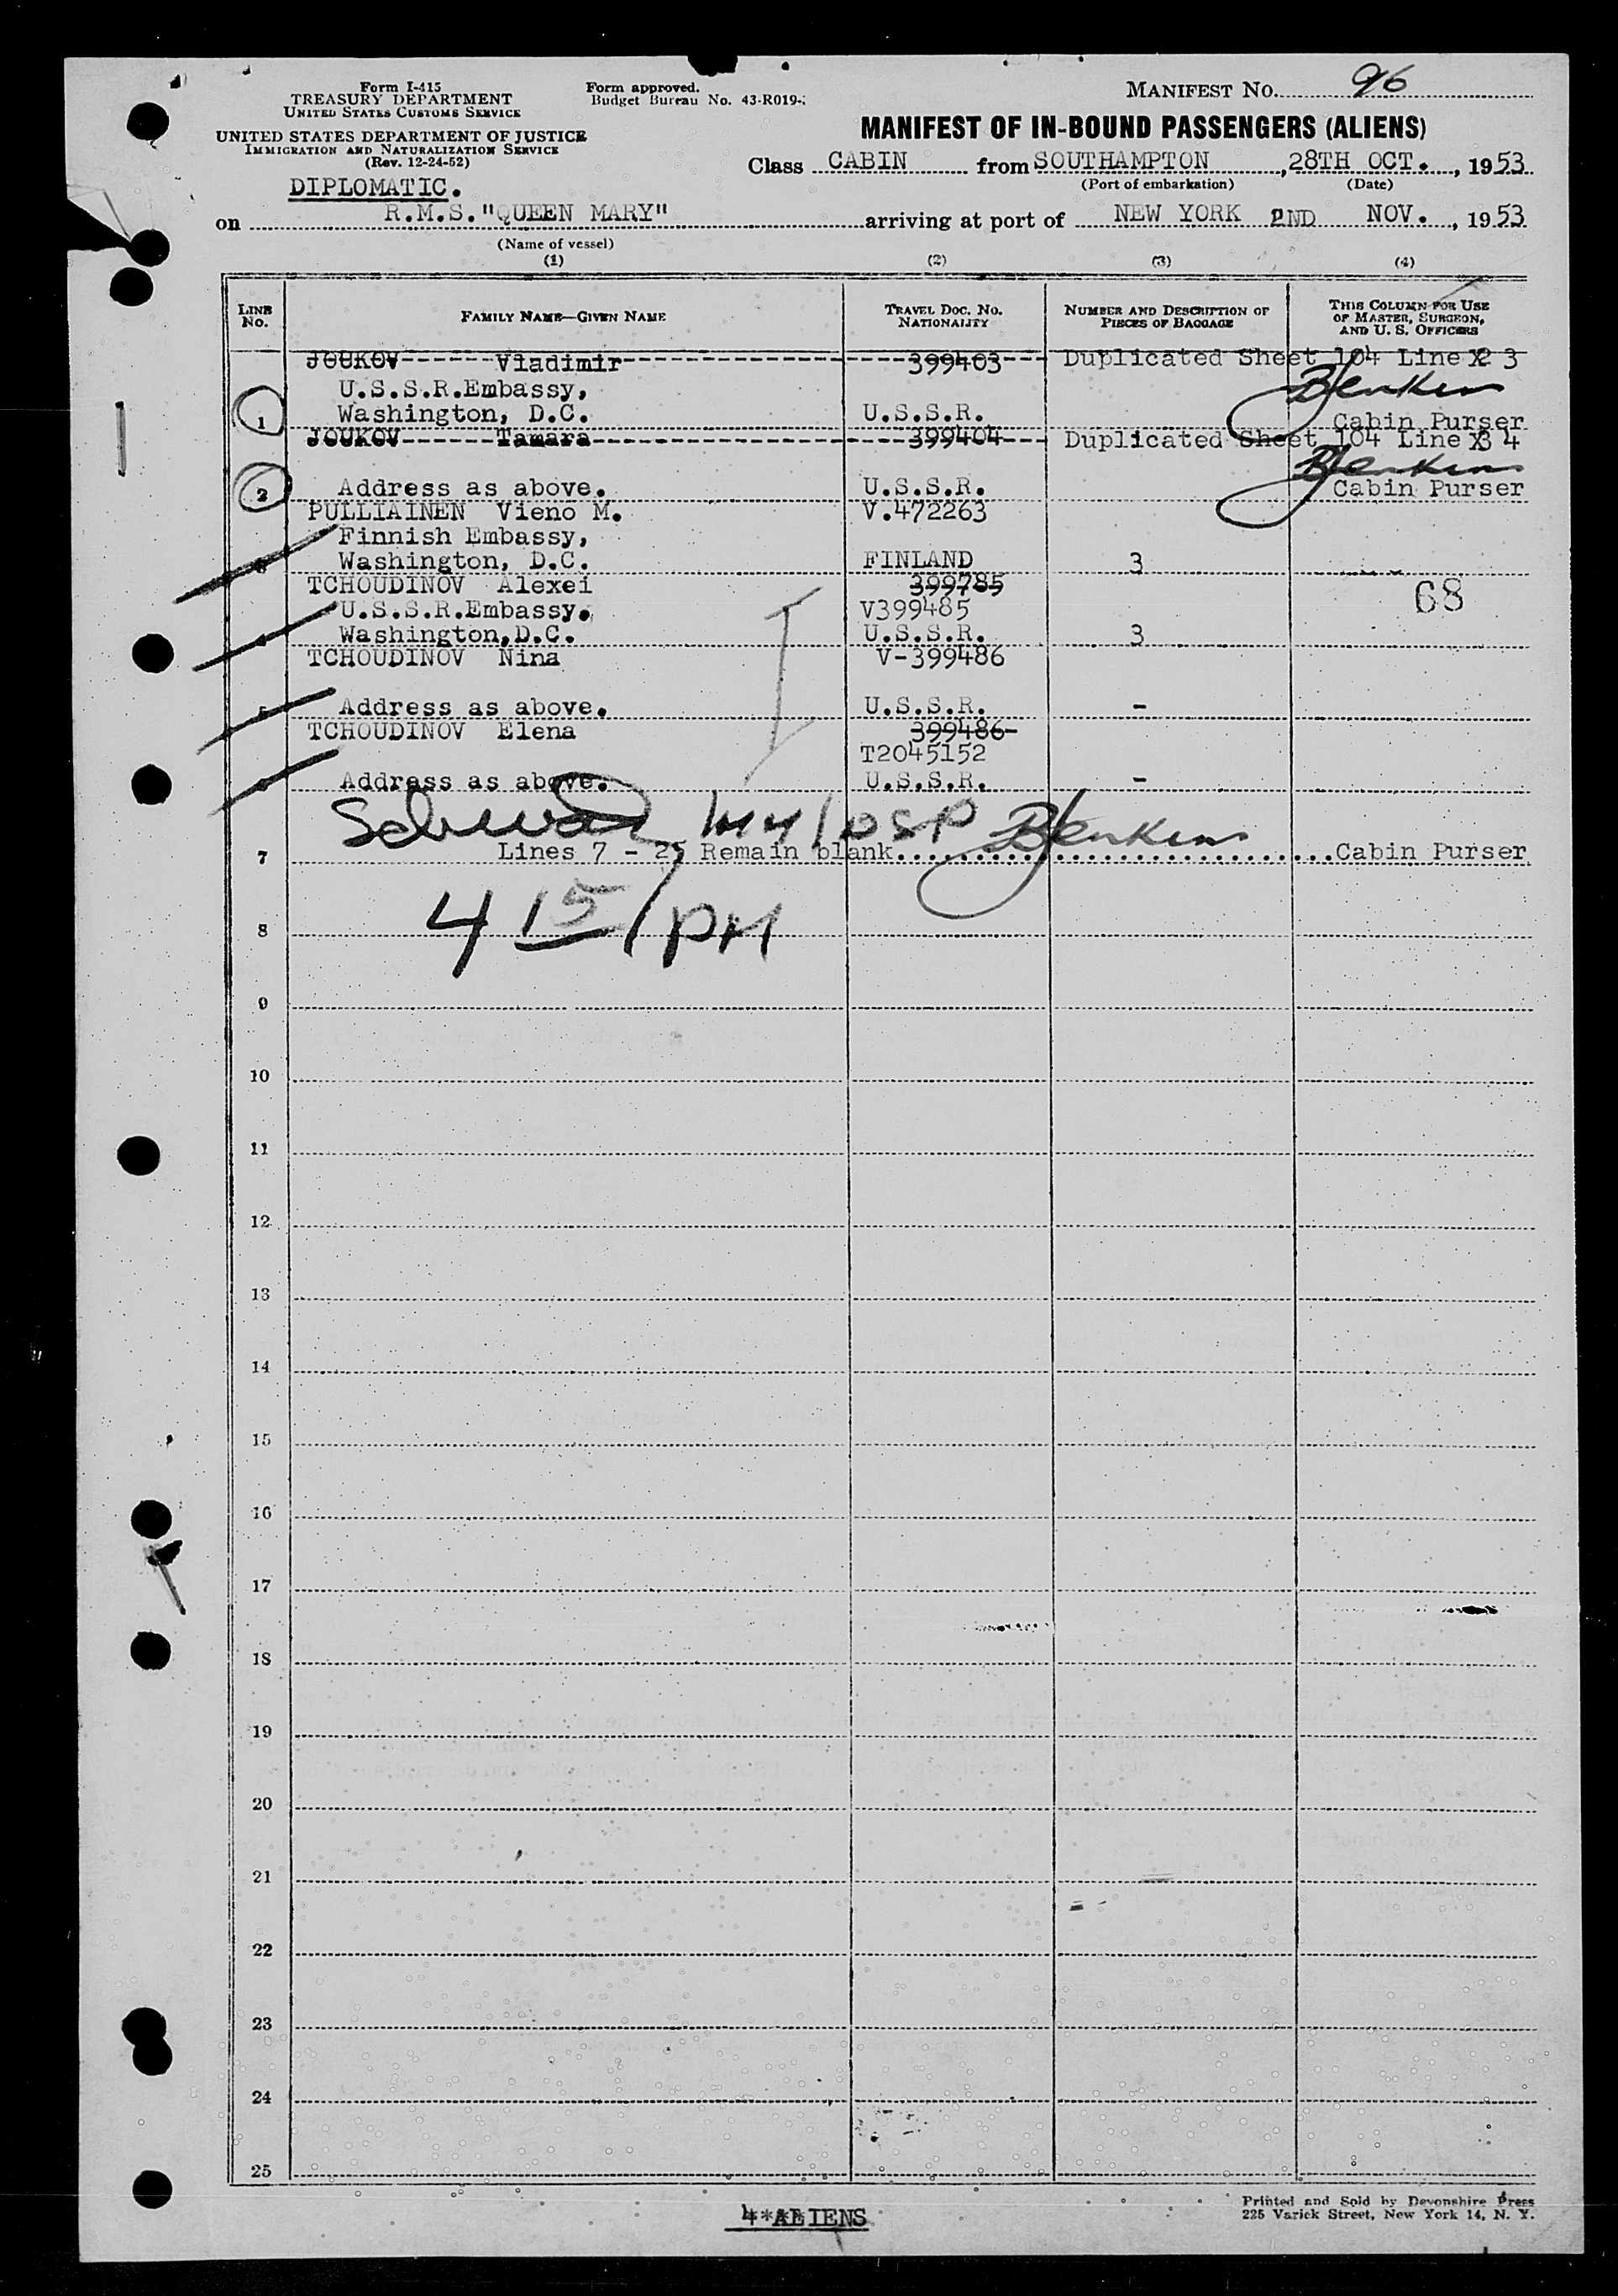 Form I-415
TREASURY DEPARTMENT
UNITED STATES CUSTOMS SERVICE
Form approved.
Budget Bureau No. 43-R019-
MANIFEST NO. 96
UNITED STATES DEPARTMENT OF JUSTICE
IMMIGRATION AND NATURALIZATION SERVICE
(Rev. 12-24-52)
MANIFEST OF IN-BOUND PASSENGERS (ALIENS)
Class CABIN from SOUTHAMPTON, 28TH OCT., 1953
(Port of embarkation) (Date)
DIPLOMATIC.
on R.M.S. "QUEEN MARY" arriving at port of NEW YORK 2ND NOV., 1953
(Name of vessel)
(1) (2) (3) (4)
LINE NO. FAMILY NAME—GIVEN NAME TRAVEL DOC. NO. NATIONALITY NUMBER AND DESCRIPTION OF PIECES OF BAGGAGE THIS COLUMN FOR USE OF MASTER, SURGEON, AND U. S. OFFICERS
JOUKOV Vladimir 399403 Duplicated Sheet 104 Line 3
U.S.S.R.Embassy, BJenkins
1 Washington, D.C. U.S.S.R. Cabin Purser
JOUKOV Tamara 399404 Duplicated Sheet 104 Line 4
BJenkins
2 Address as above. U.S.S.R. Cabin Purser
PULLIAINEN Vieno M. V.472263
Finnish Embassy,
3 Washington, D.C. FINLAND 3
TCHOUDINOV Alexei 399785
U.S.S.R.Embassy. V399485 68
4 Washington,D.C. U.S.S.R. 3
TCHOUDINOV Nina V-399486
5 Address as above. U.S.S.R. -
TCHOUDINOV Elena 399486-
T2045152
6 Address as above. U.S.S.R. -
BJenkins
7 Lines 7 - 25 Remain blank. Cabin Purser
8 4 15/PM
9
10
11
12
13
14
15
16
17
18
19
20
21
22
23
24
25
4 ALIENS
Printed and Sold by Devonshire Press
225 Varick Street, New York 14, N. Y.